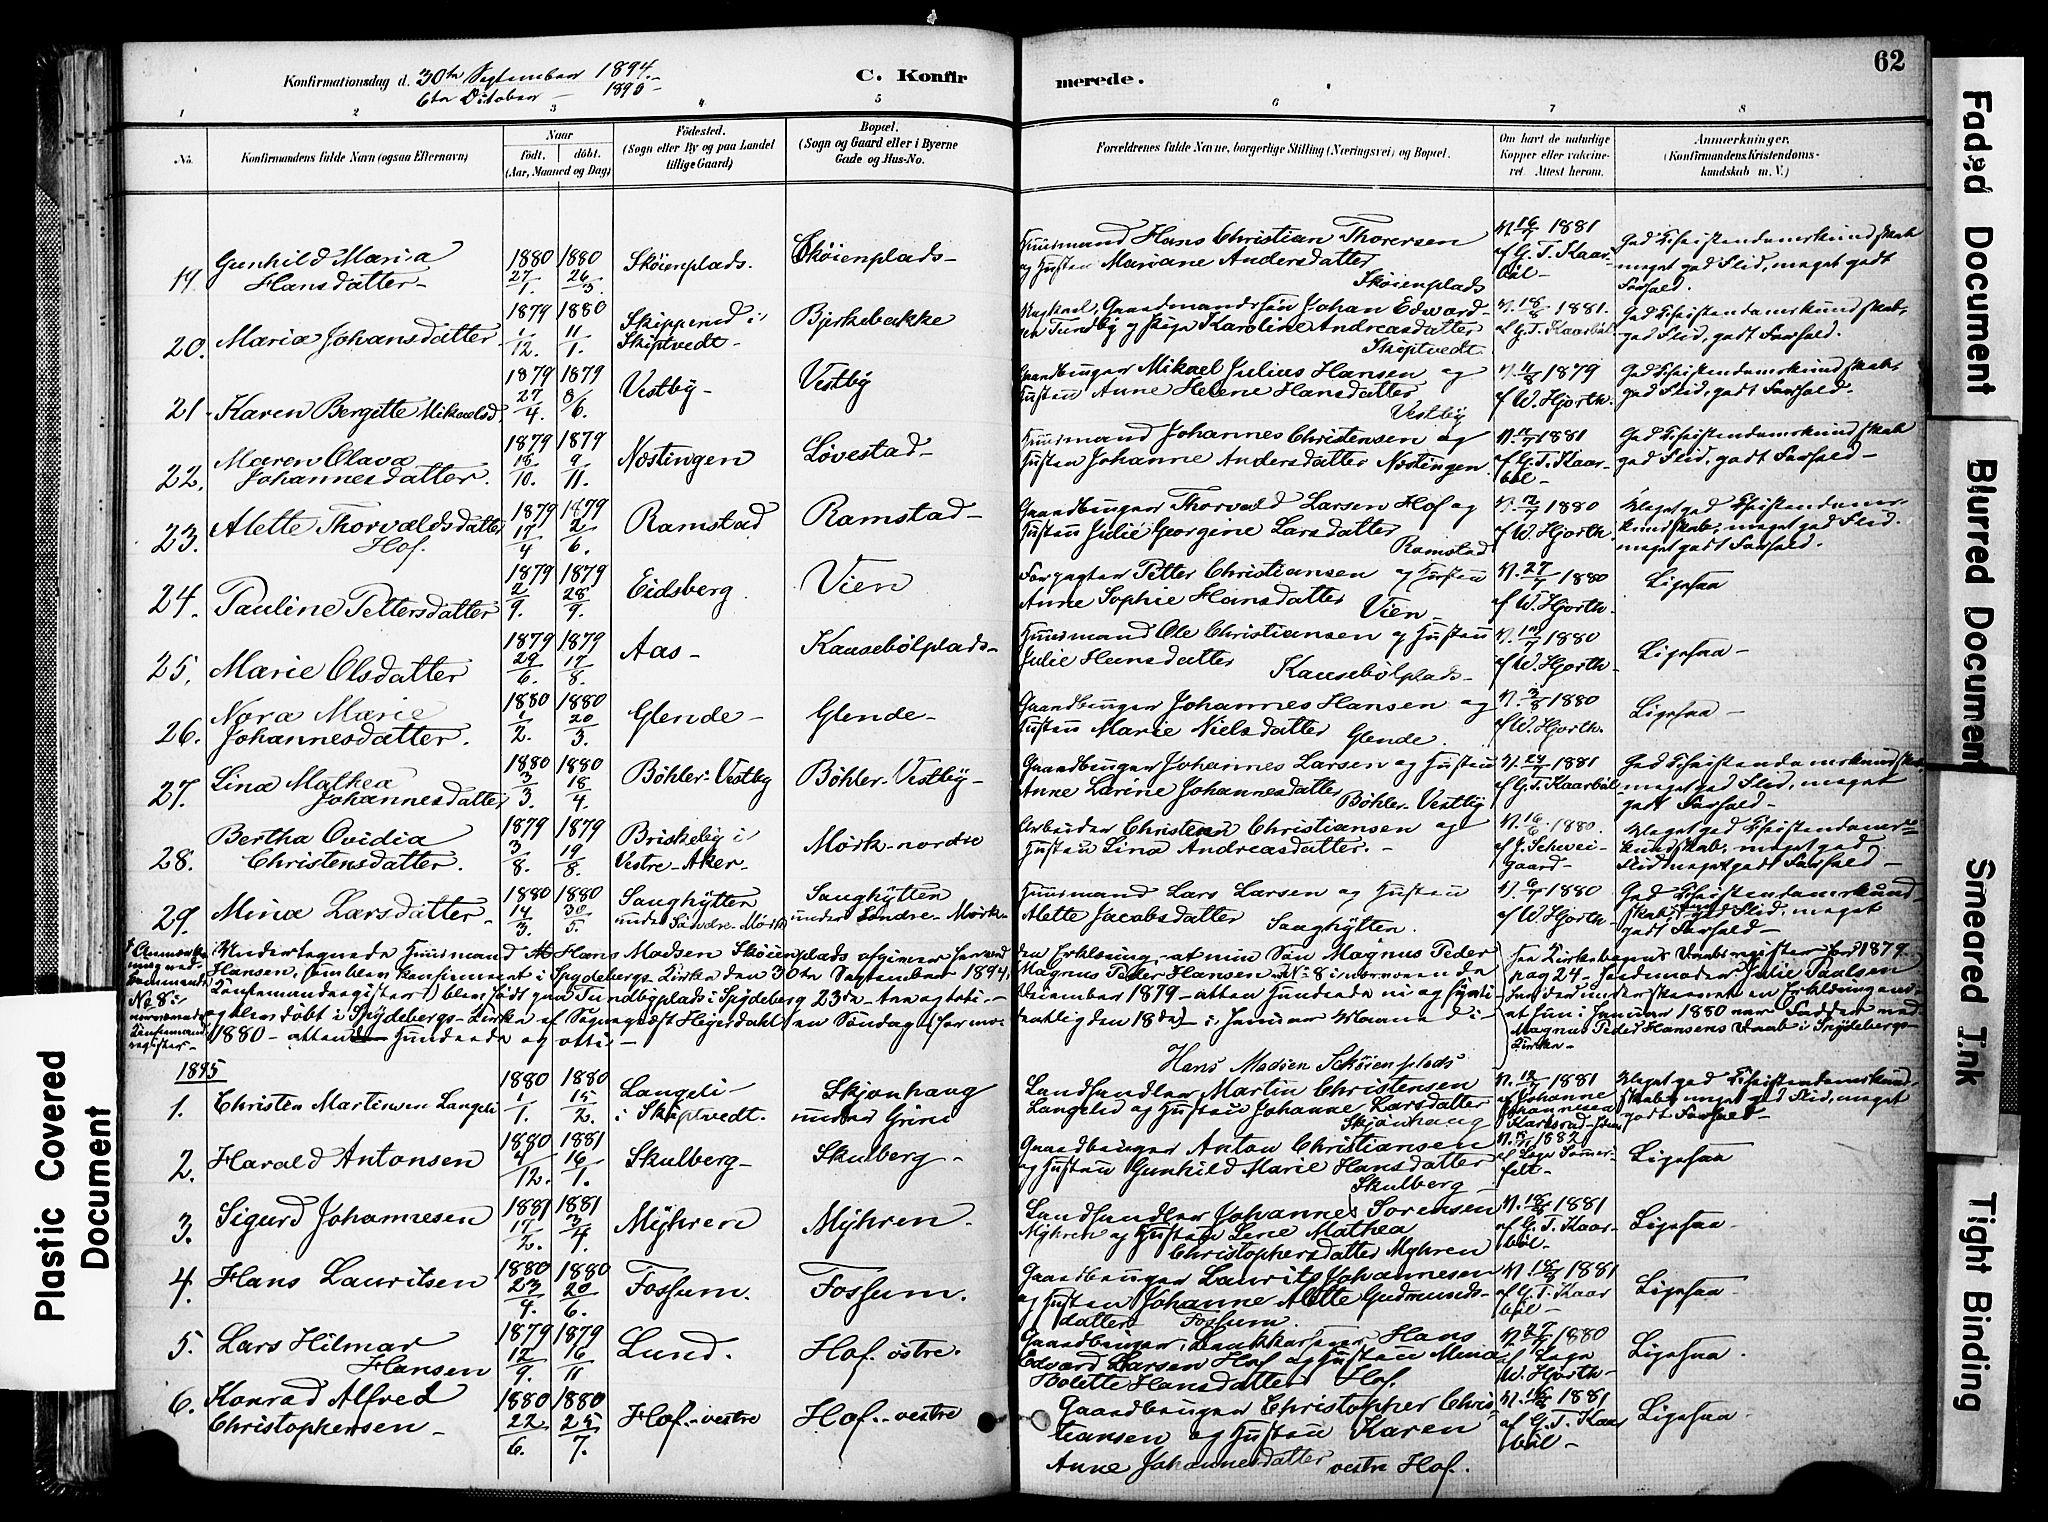 62
Konfirmationsdag d. 30te September 1894.
6te October 1895
C. Konfirmerede.
1 2 3 4 5 6 7 8
No.
Konfirmandens fulde Navn (ogsaa Efternavn)
Naar
født. døbt.
(Aar, Maaned og Dag)
Fødested.
(Sogn eller By og paa Landet
tillige Gaard)
Bopæl.
(Sogn og Gaard eller i Byerne
Gade og Hus-No.
Forældrenes fulde Navne, borgerlige Stilling (Næringsvei) og Bopæl.
Om havt de naturlige
Kopper eller vaccine-
ret. Attest herom.
Anmærkninger.
(Konfirmandens Kristendoms-
kundskab m. V.)
19. Gunhild Maria Hansdatter 1880 27/1. 1880 26/3. Skøienplads. Skøienplads
Huusmand Hans Christian Thorersen
og Hustru Mariane Andersdatter
Skøienplads
V. 16/7 1881
af G. T. Kaar-
bøl
God Christendomskundskab
meget god Flid, meget godt
Forhold.
20. Maria Johansdatter 1879 1/12. 1880 11/1. Skipperud i Skiptvedt Bjerkebække
Gaardmandssøn Johan Edvard-
sen Tundby og Pige Karoline Andreasdatter
Skiptvedt
V. 18/8 1881.
af G. T. Kaarbøl
God Christendomskundskab,
god Flid, godt Forhold.
21 Karen Bergitte Mikaelsd. 1879 27/4. 1879 8/6. Vestby Vestby
Gaardbruger Mikael Julius Hansen og
Hustru Anne Helene Hansdatter
Vestby
1879
af W. Hjorth.
God Christendomskundskab,
god Flid, godt Forhold.
22. Maren Olava Johannesdatter. 1879 18/10. 1879 9/11. Nøstingen Løvestad
Huusmand Johannes Christensen og
Hustru Johanne Andersdatter Nøstingen
1881
af G. T. Kaar-
bøl
God Christendomskundskab
god Flid, godt Forhold
23. Alette Thorvaldsdatter Hof. 1879 17/4 1879 2/6. Ramstad Ramstad
Gaardbruger Thorvald Larsen Hof og
Hustru Julie Georgine Larsdatter
Ramstad
1880
af W. Hjorth
Meget god Christendoms-
kundskab, meget god Flid.
meget godt Forhold.
24. Pauline Pettersdatter 1879 2/9. 1879 28/9. Eidsberg. Vien
Forpagter Petter Christiansen og Hustru
Anne Sophie Hansdatter Vien
V. 27/7 1880
af W. Hjorth
Ligesaa
25. Marie Olsdatter 1879 29/6. 1879 17/8. Aas Kausebølplads
Huusmand Ole Christiansen og Hustru
Julie Hansdatter Kausebølplads
1880
af W. Hjorth
Ligesaa
26. Nora Marie Johannesdatter. 1880 1/2. 1880 20/3. Glende Glende
Gaardbruger Johannes Hansen og
Hustru Marie Nielsdatter Glende.
V. 3/8 1880
af W. Hjorth.
Ligesaa
27. Lina Mathea Johannesdatter 1880 3/3. 1880 18/4. Bøhler-Vestby Bøhler-Vestby
Gaardbruger Johannes Larsen og Hustru
Anne Larine Johannesdatter
Bøhler-Vestby
1881
af G. T. Kaarbøl
God Christendomskundskab,
meget god Flid, meget
godt Forhold
28. Bertha Ovidia Christensdatter. 1879 3/8. 1879 19/8. Briskeby i Vestre-Aker Mørk-nordre
Arbeider Christen Christiansen og
Hustru Lina Andreasdatter.
V. 16/6 1880.
af J. Schwei-
gaard
Meget god Christendoms-
kundskab, meget god
Flid meget godt Forhold
29. Mina Larsdatter 1880 14/3. 1880 30/5. Saughytten under Søndre-Mørk Saughytten under Søndre-Mørk
Huusmand Lars Larsen og Hustru
Alette Jacobsdatter Saaghytten.
V. 6/7 1880
af W. Hjorth
God Christendomskund-
skab, god Flid, meget
godt Forhold
Undertegnede Huusmand Hans Madsen Skøienplads afgiver herved den Erklæring, at min Søn Magnus Peder
Hansen, som blev konfirmeret i Spydebergs Kirke den 30te September 1894, Magnus Peder Hansen No 8 i
blev født paa Tundbyplads i Spydeberg 23de December 1879 – atten Hundrede ni og sytti
og blev døbt i Spydebergs Kirke af Sogneprest Heyerdahl en Søndag den 18de i Januar Maaned
1880 – atten Hundrede og otti
Hans Madsen Schøienplads
Se Kirkebogens Daabsregister for 1879
pag 24. Julie Paulsen
har underskrevet en Erklæring
at hun i Januar 1880 var Fadder ved
Magnus Peder Hansens Daab i Spydebergs
Kirke
1895
1. Christen Martinsen Langeli 1880 1/1. 1880 15/2. Langeli i Skiptvedt. Skjønhaug under Grini
Landhandler Martin Christensen
Langelid og Hustru Johanne Larsdatter
Skjønhaug
1881
af Johanne
Johannesen
God Christendomskund-
skab, meget god Flid, meget
godt Forhold
2. Harald Antonsen 1880 4/12. 1881 16/1. Skulberg Skulberg
Gaardbruger Anton Christiansen
og Hustru Gunhild Marie Hansdatter
Skulberg
1882
af Læge Sømer-
felt
Ligesaa
3. Sigurd Johannesen 1881 17/2. 1881 3/4. Myhren Myhren.
Landhandler Johannes Sørensen
Myhren og Hustru Lene Mathea
Christophersdatter Myhren
V. 18/8 1881
af G. T. Kaar-
bøl
Ligesaa
4. Hans Lauritsen 1880 23/4. 1880 20/6. Fossum. Fossum.
Gaardbruger Laurits Johannesen
og Hustru Johanne Alette Gudmunds-
datter Fossum.
V. 18/8 1881
af G. T. Kaar
bøl
Ligesaa
5. Lars Hilmar Hansen 1879 12/9. 1879 16/11 Lund. Hof østre.
Gaardbruger, Hans
Edvard Larsen Hof og Hustru Mina
Bolette Hansdatter Hof.
V. 27/7 1880
af Læge
W. Hjorth
Ligesaa.
6. Konrad Alfred Christophersen 1880 22/6. 1880 25/7. Hof-vestre Hof-vestre
Gaardbruger Christopher Chris-
tiansen og Hustru Karen
Anne Johannesdatter vestre Hof.
V. 18/8 1881
af G. T. Kaar
bøl
Ligesaa
Faded Document
Blurred Document
Smeared Ink
Tight Binding
Plastic Covered
Document